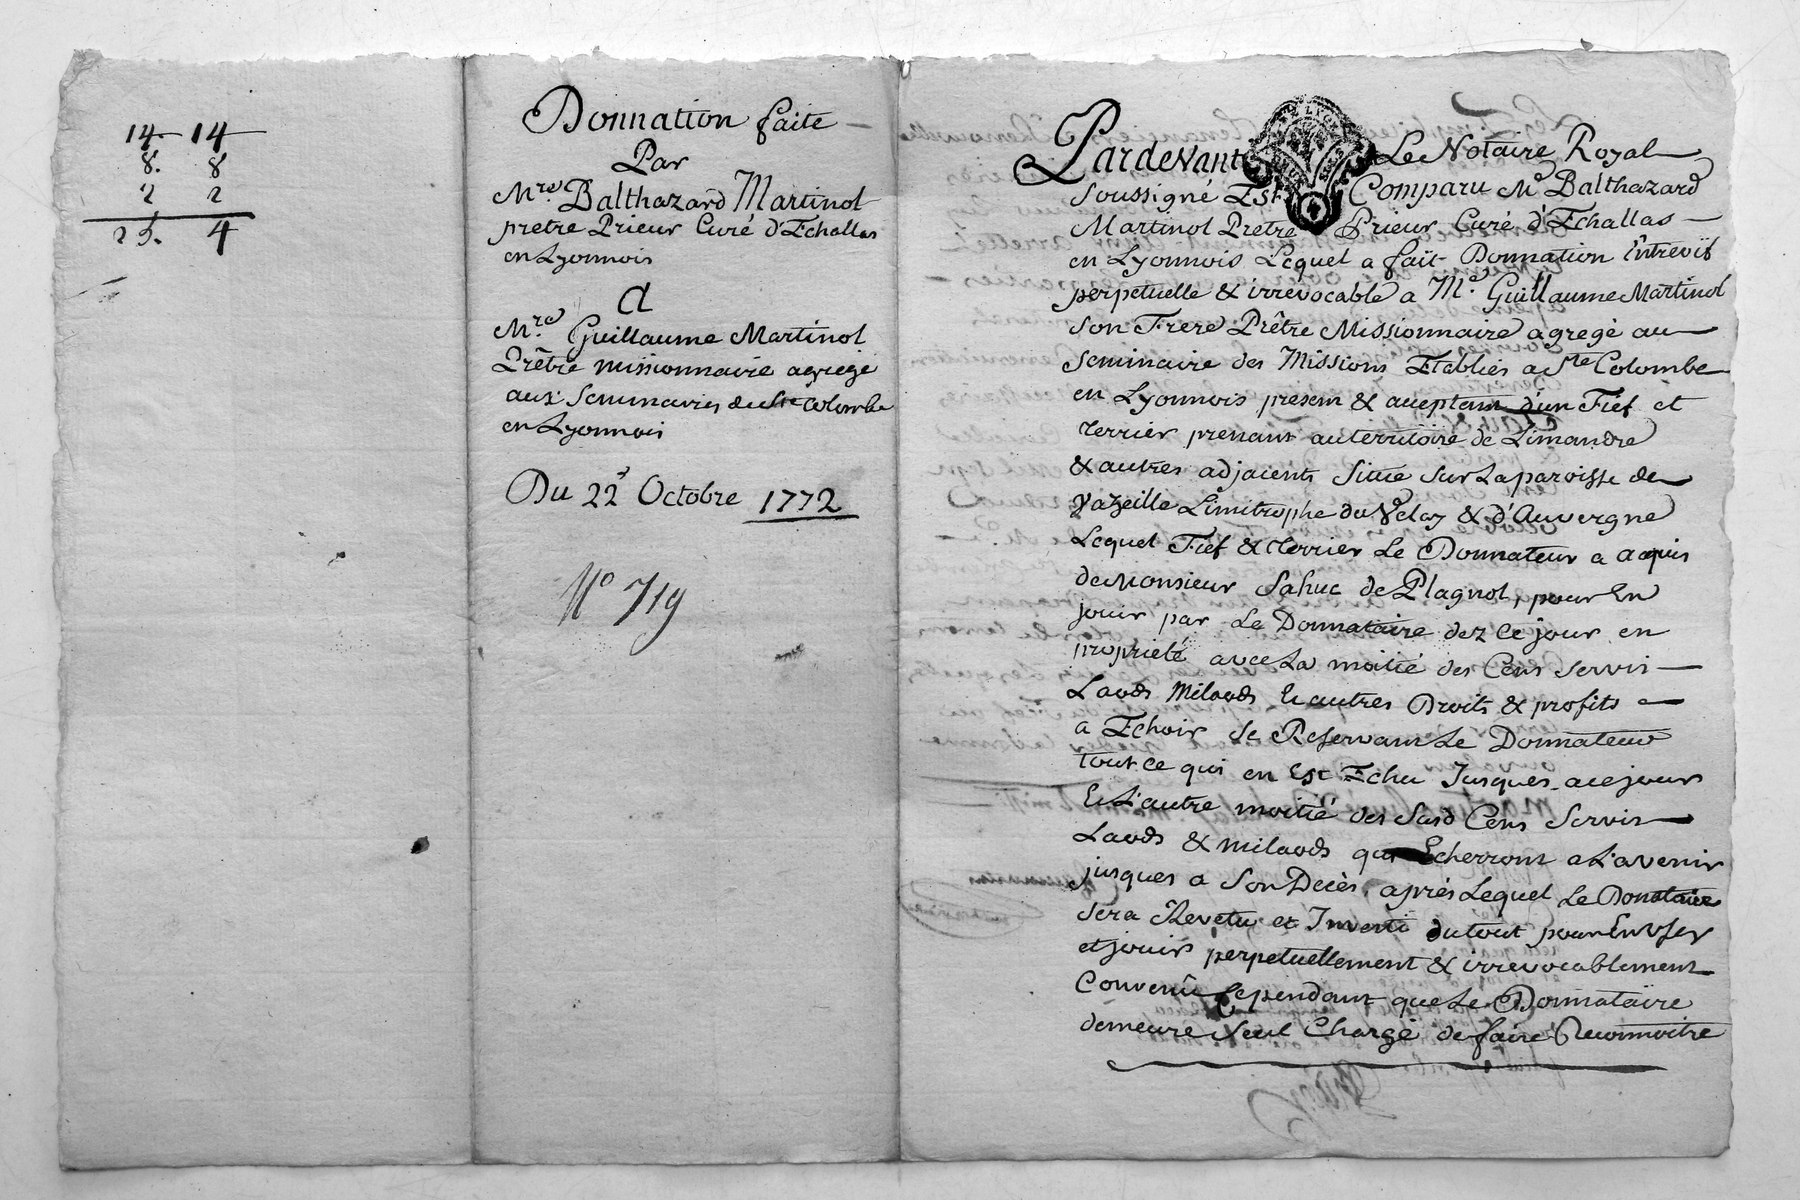 14. 14
8. 8
2 2
25. 4
Donnation faite
Par
Mre. Balthazard Martinol
pretre Prieur Curé d'Echallas
en Lyonnois
A
Mre. Guillaume Martinol
Prêtre missionnaire agregé
aux Seminaries de Ste Colombe
en Lyonnois
Du 22 Octobre 1772
No 719
Pardevant Le Notaire Royal
Soussigné Est Comparu Me Balthazard
Martinol Prêtre Prieur Curé d'Echallas
en Lyonnois Lequel a fait Donnation Entrevif
perpetuelle & irrevocable a Me. Guillaume Martinol
Son Frere Prêtre Missionnaire agregé au
Seminaire des Missions Etablies a Ste Colombe
en Lyonnois present & aceptant d'un Fief et
terrier prenant au territoire de Limandre
& autres adjacents Situé Sur La paroisse de
Vazeille Limitrophe du Velay & d'Auvergne
Lequel Fief & terrier Le Donnateur a aquis
de Monsieur Sahuc de Plagnol, pour En
jouir par Le Donnataire dez ce jour en
proprieté avec La moitié des Cens Servis
Laods Milaods & autres Droits & profits
a Echoir Se Reservant Le Donnateur
tout ce qui en Est Echu Jusques a ce jour
Et L'autre moitié des Susd Cens Servis
Laods & milaods qui Echerront a L'avenir
jusques a Son Decès, après Lequel Le Donataire
Sera Revetu et Investi du tout pour En User
et jouir perpetuellement & irrevocablement
Convenu Cependant que Le Donnataire
demeure Seul Chargé de faire Reconnoitre